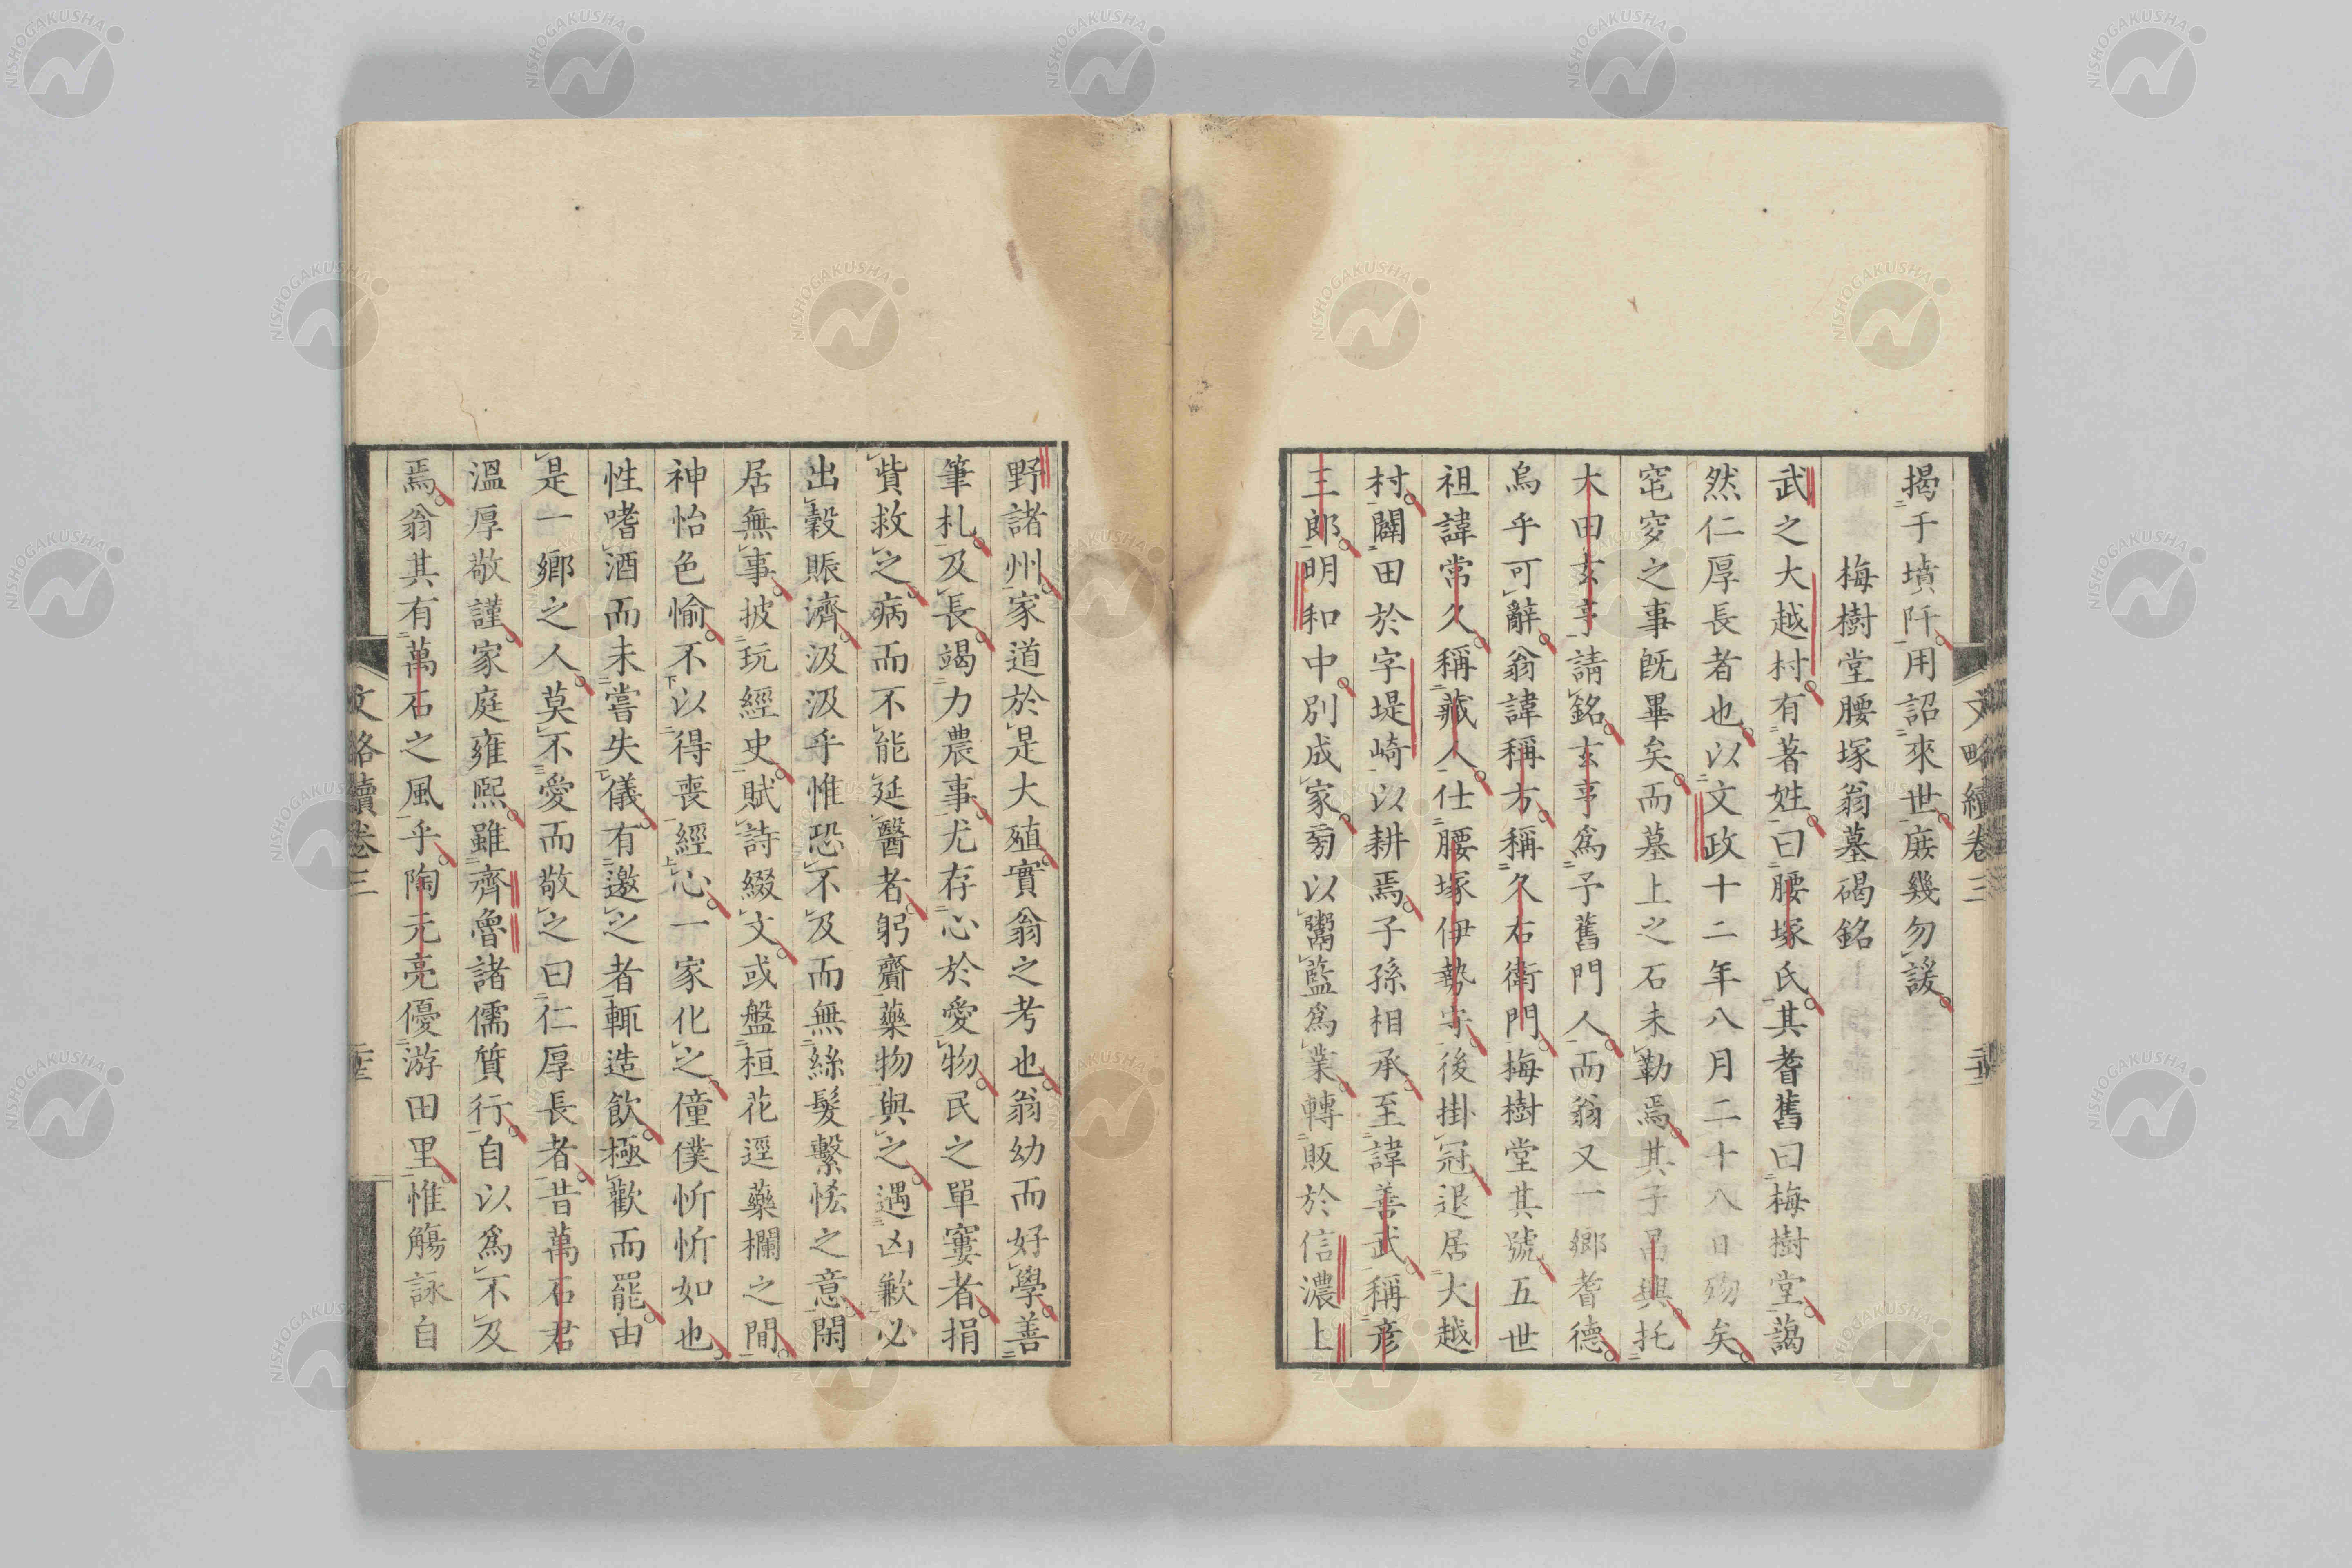 揭于墳阡用詔來世庶幾勿諼
梅樹堂腰塚翁墓碣銘
武之大越村有著姓曰腰塚氏其耆舊曰梅樹堂藹
然仁厚長者也以文政十二年八月二十八日歿矣
窀穸之事既畢矣而墓上之石未勒焉其子昌興托
大田玄亨請銘玄亨爲予舊門人而翁又一鄉耆德
烏乎可辭翁諱稱方稱久右衛門梅樹堂其號五世
祖諱常久稱藏人仕腰塚伊勢守後掛冠退居大越
村闢田於字堤崎以耕焉子孫相承至諱善武稱彥
三郎明和中別成家旁以鬻藍爲業轉販於信濃上
野諸州家道於是大殖實翁之考也翁幼而好學善
筆札及長竭力農事尤存心於愛物民之單窶者捐
貲救之病而不能延醫者躬齎藥物與之遇凶歉必
出穀賑濟汲汲乎惟恐不及而無絲髮繫恡之意閑
居無事披玩經史賦詩綴文或盤桓花逕藥欄之間
神怡色愉不以得喪經心一家化之僮僕忻忻如也
性嗜酒而未嘗失儀有邀之者輒造飲極歡而罷由
是一鄉之人莫不愛而敬之曰仁厚長者昔萬石君
溫厚敬謹家庭雍熙雖齊魯諸儒質行自以爲不及
焉翁其有萬石之風乎陶元亮優游田里惟觴詠自
文略續卷三
文略續卷三
NISHOGAKUSHA